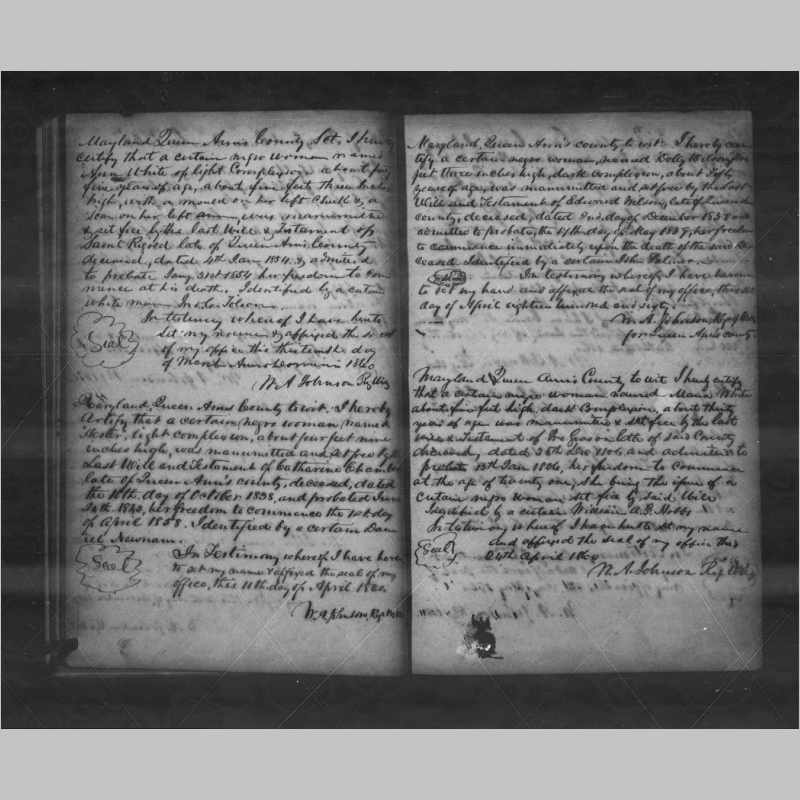 Maryland Queen Ann's County Sct, I hereby
certify that a certain negro woman named
Ann White of light Complexion, about
five years of age, about five feet three inches
high, with a on her left Cheek & a
Scar on her left arm, was manumitted
& set free by the last Will & Testament of
Saml late of Queen Ann's County
deceased, dated 4th Jan 1834 & admitted
to probate Jany 31st 1834 her freedom to com
mence at his death. Identified by a certain
white man
In testimony whereof I have hereto
Set my name & affixed the seal
of my office this thirteenth day
of March Anno domini 1860
Seal
W. A. Johnson Reg Wills
Maryland, Queen Ann's County to wit. I hereby
Certify that a certain negro woman, named
Hester, light complexion, about four feet nine
inches high, was manumitted and set free by the
Last Will and Testament of Catharine
late of Queen Ann's county, deceased, dated
the 10th day of October 1838, and probated June
1840, her freedom to commence the 1st day
of April 1858. Identified by a certain Dan
iel Newnam.
In Testimony whereof I have here
to set my name & affixed the seal of my
office, this 11th day of April 1860.
Seal
W. A. Johnson, Reg Wills
Maryland, Queen Ann's county to wit. I hereby cer
tify a certain negro woman, named Dolly
feet three inches high, dark complexion, about fifty
years of age, was manumitted and set free by the last
Will and Testament of Edward late of Queen Ann's
county, deceased, dated 2nd day of December 1837 and
admitted to probate, the 14th day of May 1839, her freedom
to commence immediately upon the death of the said de
ceased Identified by a certain John
In testimony whereof, I have hereun
to set my hand and affixed the seal of my office, this
day of April eighteen hundred and sixty.
Seal
W. A. Johnson, Reg of Wills
for Queen Ann's county
Maryland Queen Ann's County to wit I hereby certify
that a certain negro woman named Maria White
about five feet high, dark Complexion, about thirty
years of age was manumitted & set free by the last
Will & Testament of late of said County
deceased, dated 28th Dec 1806 and admitted to
probate 13th Jan 1806, her freedom to Commence
at the age of twenty one, she being the issue of a
Certain negro Woman set free by said Will
Identified by a certain William A. P. Hobbs
In testimony whereof I have hereto set my name
and affixed the seal of my office this
24th April 1860
Seal
W. A. Johnson Reg Wills